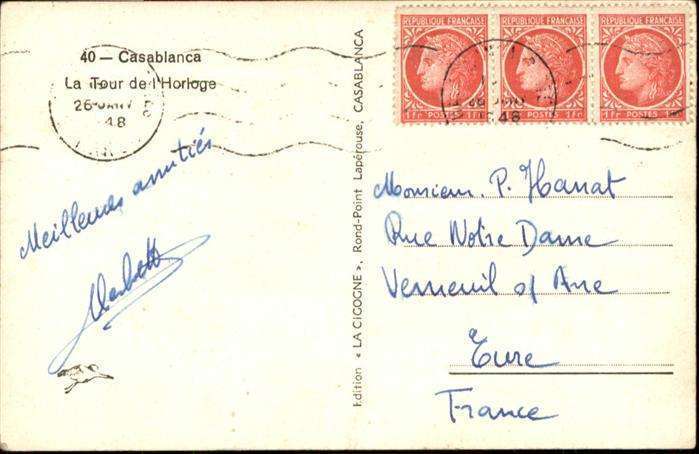 40 — Casablanca
La Tour de l'Horloge
26 JANV
48
Meilleures amitiés
Edition « LA CIGOGNE », Rond-Point Lapérouse, CASABLANCA
REPUBLIQUE FRANÇAISE
1 Fr POSTES
REPUBLIQUE FRANÇAISE
1 Fr POSTES
REPUBLIQUE FRANÇAISE
1 Fr POSTES
26
48
Monsieur. P. Hanat
Rue Notre Dame
Verneuil s/ Avre
Eure
France